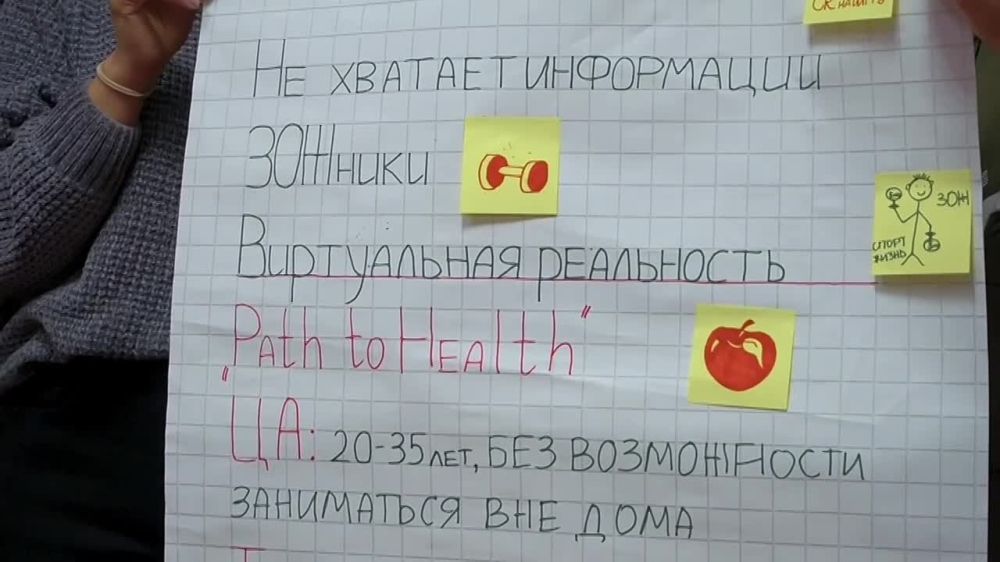 Не хватает информации
ЗОЖники
ЗОЖ
спорт
жизнь
Виртуальная реальность
"Path to Health"
ЦА: 20-35 лет, без возможности
заниматься вне дома